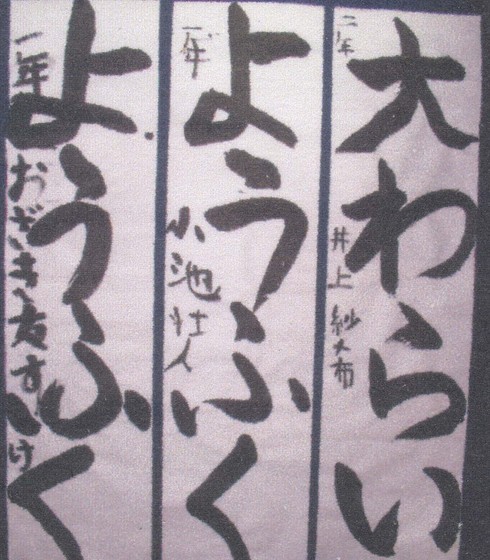 大わらい
二年
井上 紗布
ようふく
一年
小池壮人
ようふく
一年
おざき友すけ